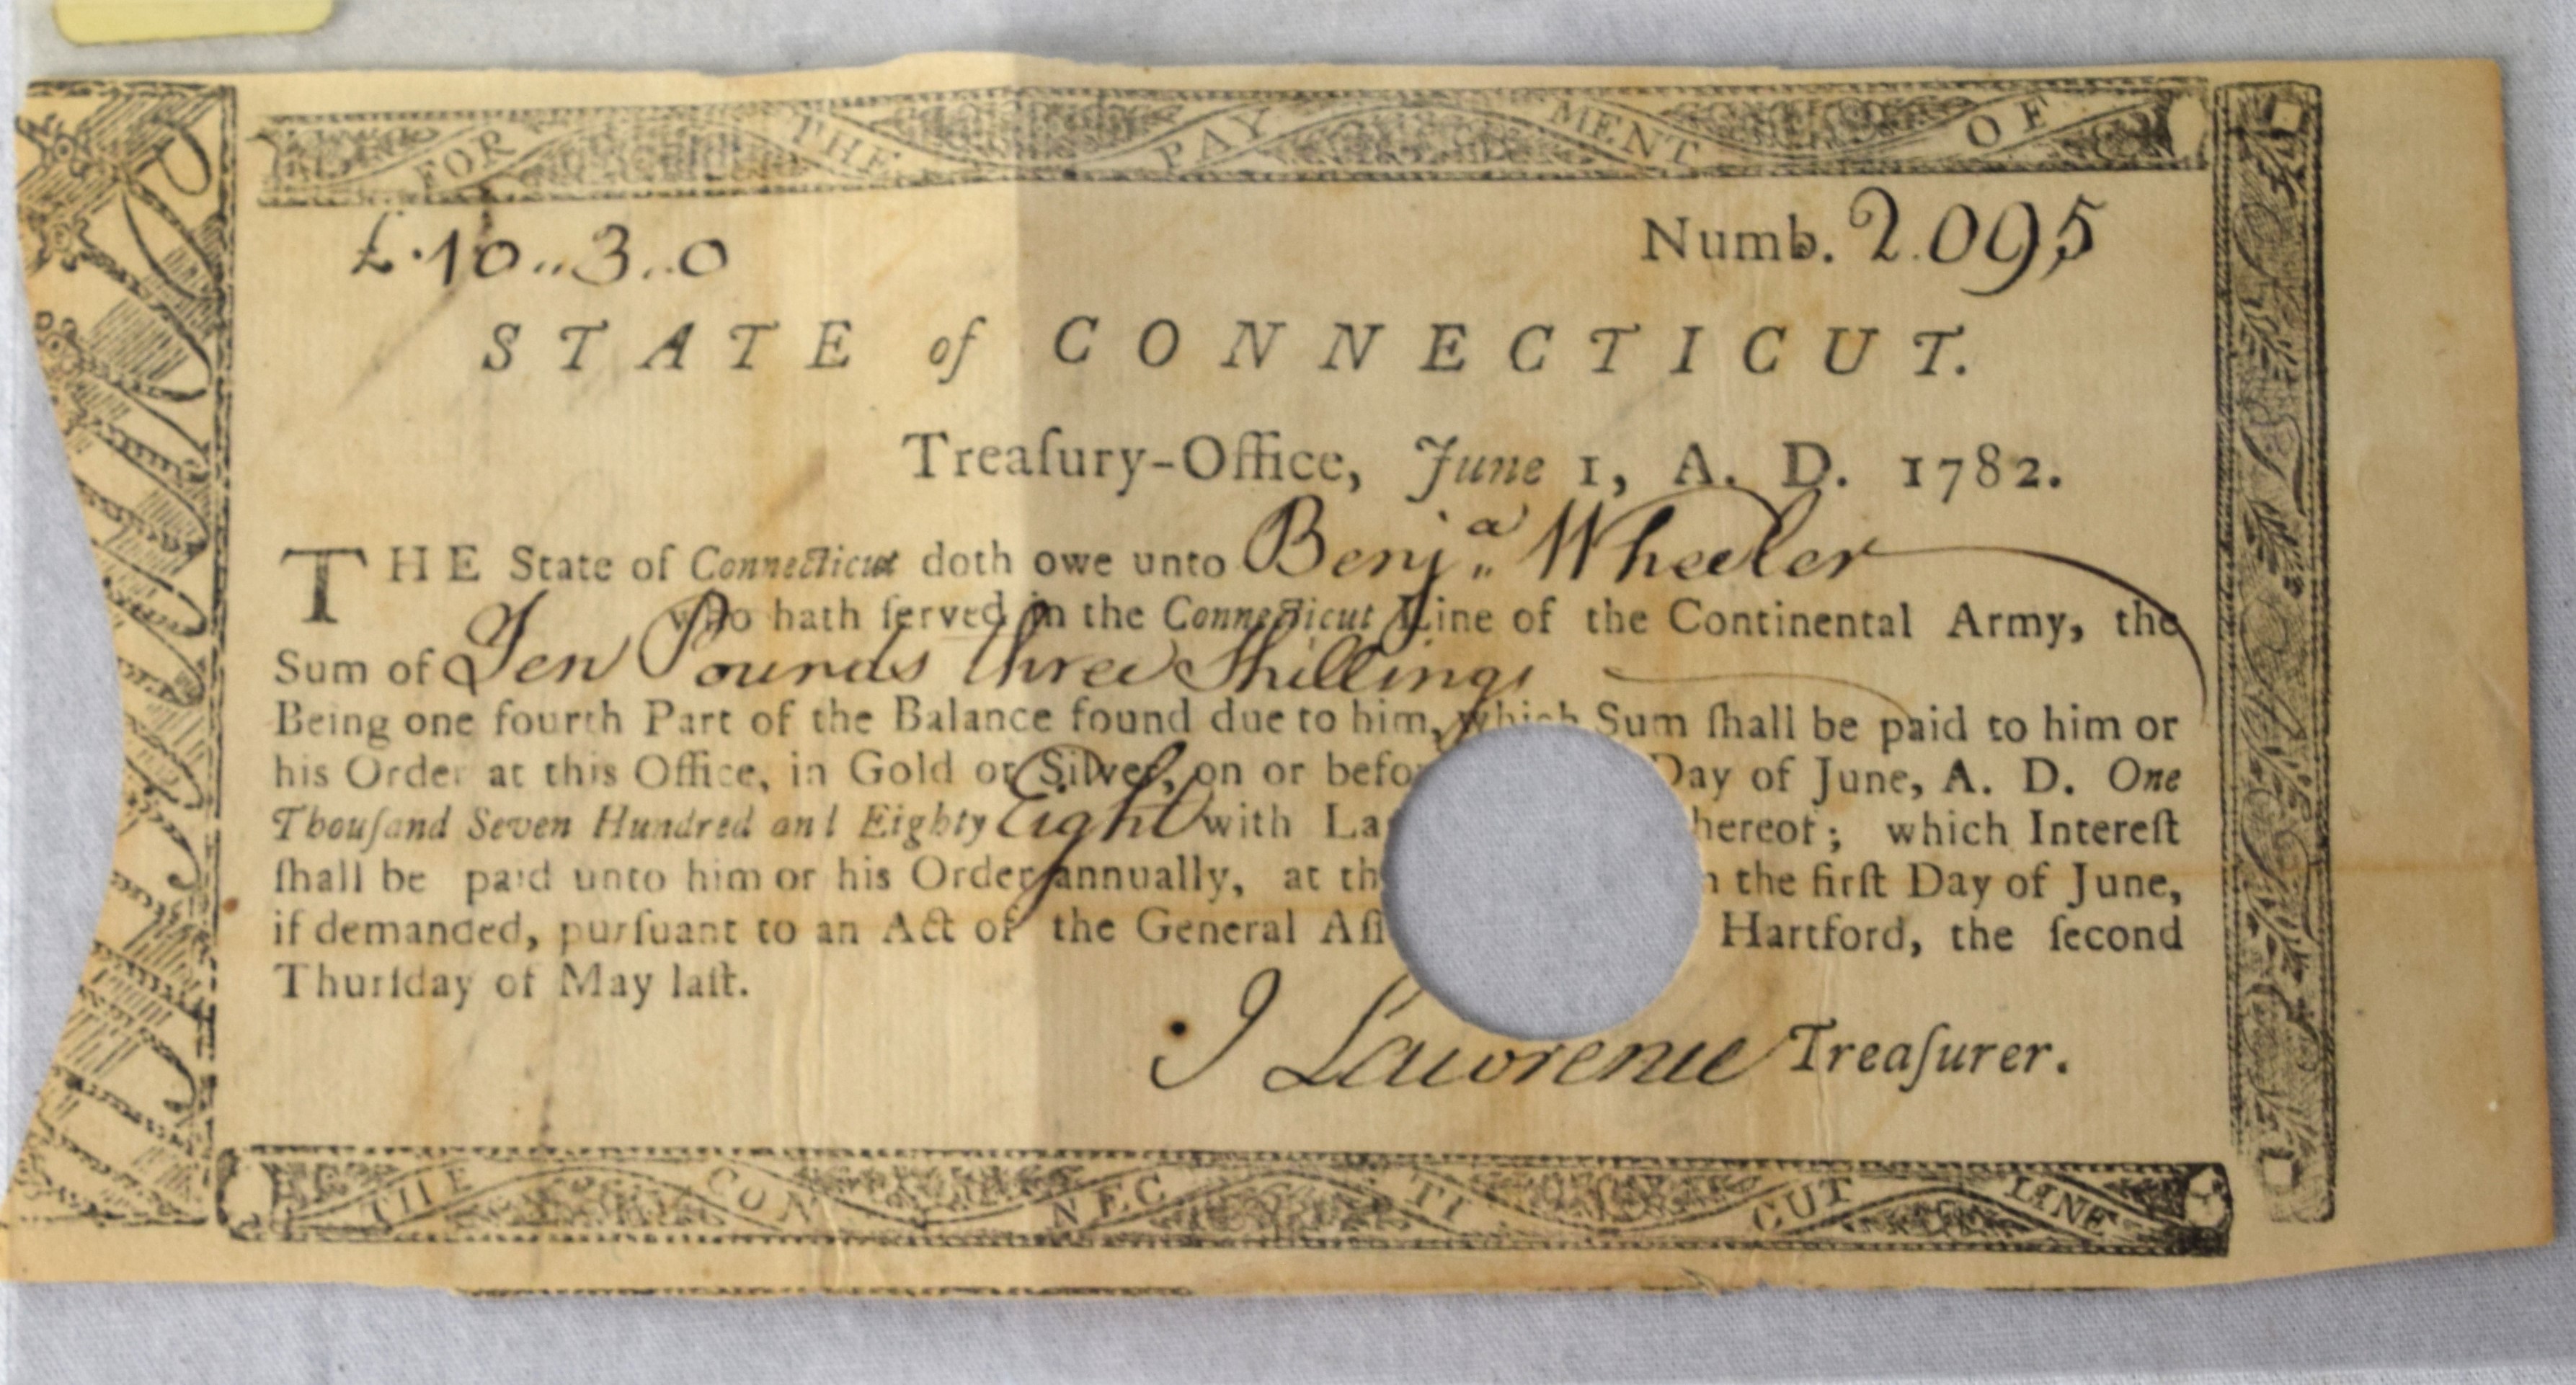 FOR THE PAY MENT OF
£.10..3..0 Numb. 2.095
STATE of CONNECTICUT.
Treaſury-Office, June 1, A. D. 1782.
THE State of Connecticut doth owe unto Benjᵃ Wheeler
who hath ſerved in the Connecticut Line of the Continental Army, the
Sum of Ten Pounds three Shillings
Being one fourth Part of the Balance found due to him, which Sum ſhall be paid to him or
his Order at this Office, in Gold or Silver, on or befo Day of June, A. D. One
Thouſand Seven Hundred and Eighty Eight with La hereof; which Intereſt
ſhall be paid unto him or his Order annually, at th n the firſt Day of June,
if demanded, purſuant to an Act of the General Aſſ Hartford, the ſecond
Thurſday of May laſt.
J Lawrence Treaſurer.
THE CON NEC TI CUT LINE